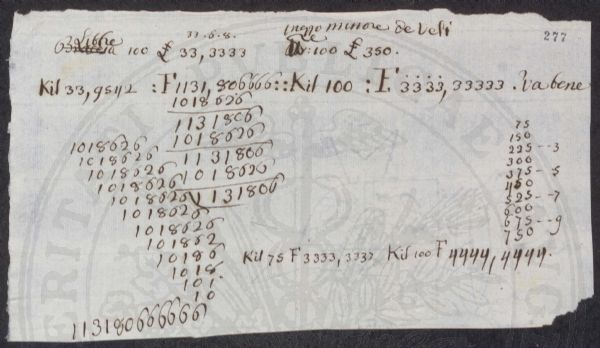 33.6.8. prezzo minore de Veli
Libbre 100 £ 33,3333 100 £ 350. 277
Kil 33,9542 : F 1131,806666 :: Kil 100 : F 3333,33333 . va bene
1018626
1131806
1018626
1131806
1018626
1131806
1018626
1018626
1018626
1018626
1018626
1018626
1018626
101862
10186
1018
101
10
113180666666
75
150
225--3
300
375--5
450
525--7
600
675--9
750
Kil 75 F 3333,3333 Kil 100 F 4444,4444.